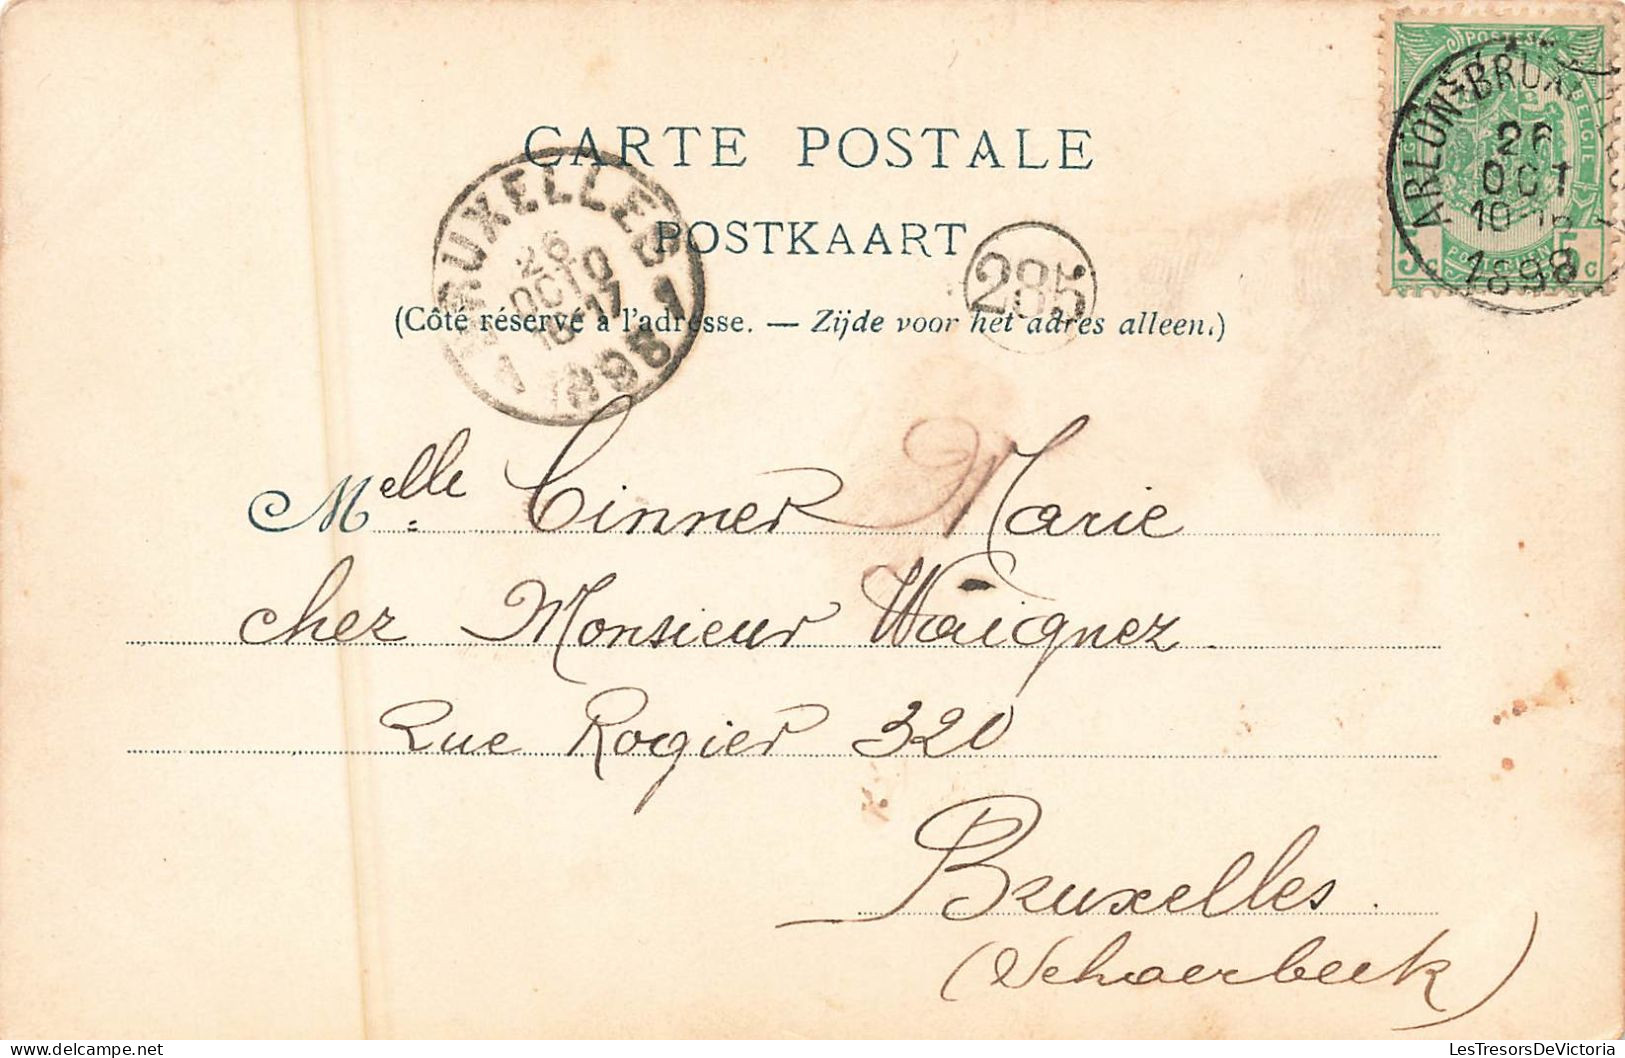 CARTE POSTALE
POSTKAART
(Côté réservé à l'adresse. — Zijde voor het adres alleen.)
BRUXELLES 1
26
OCTO
16-17
1898
285
POSTES
BELGIE
5 c
5 c
ARLON-BRUX
26
OCT
10-
1898
Melle Cinner Marie
chez Monsieur Waignez
Rue Rogier 320
Bruxelles.
(Schaerbeek)
LesTresorsDeVictoria